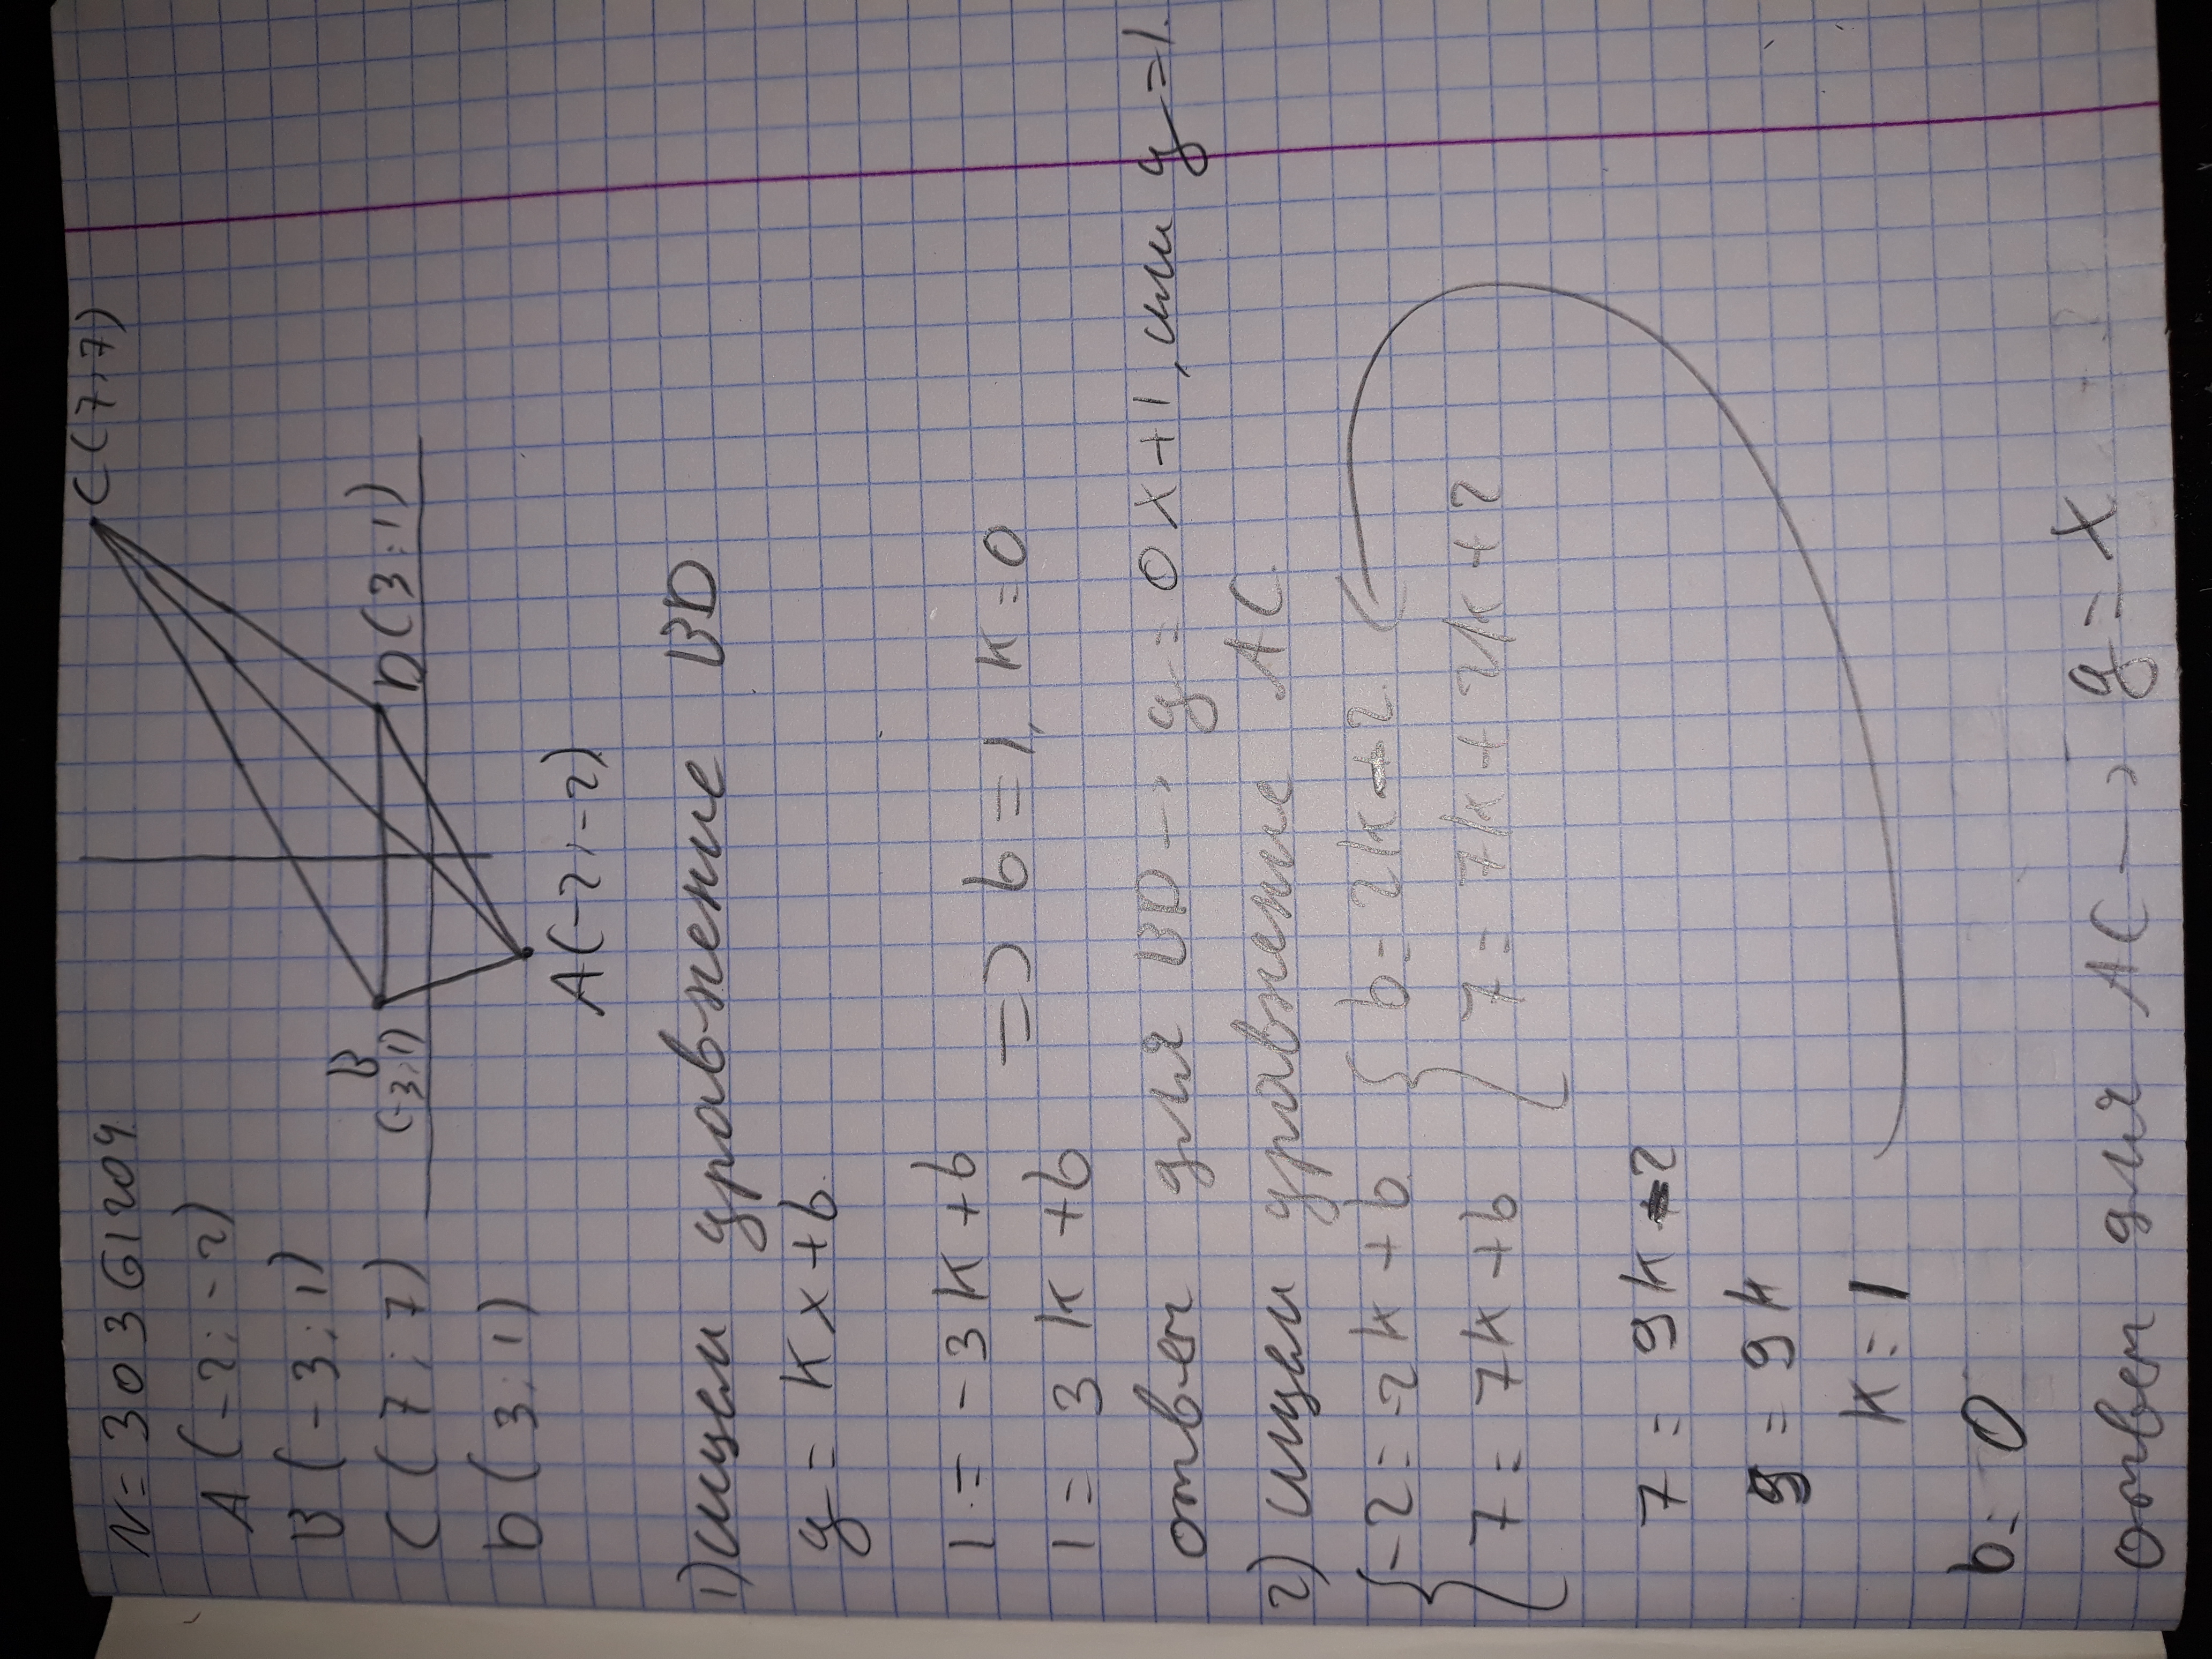 N = 30361204.
A (-2; -2)
B (-3; 1)
C (7; 7)
D (3; 1)
C (7; 7)
B
(-3; 1)
D (3; 1)
A (-2; -2)
1) ищем уравнение BD
y = kx + b.
1 = -3k + b
1 = 3k + b
=> b = 1, k = 0
ответ для BD -> y = 0x + 1, или y = 1.
2) ищем уравнение AC.
{ -2 = -2k + b { b = 2k - 2
7 = 7k + b 7 = 7k + 2k + 2
7 = 9k - 2
9 = 9k
k = 1
b = 0
ответ для AC -> y = x